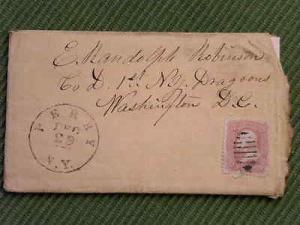 E. Randolph Robinson
Co D. 1st N.Y. Dragoons
Washington D.C.
PERRY
N.Y.